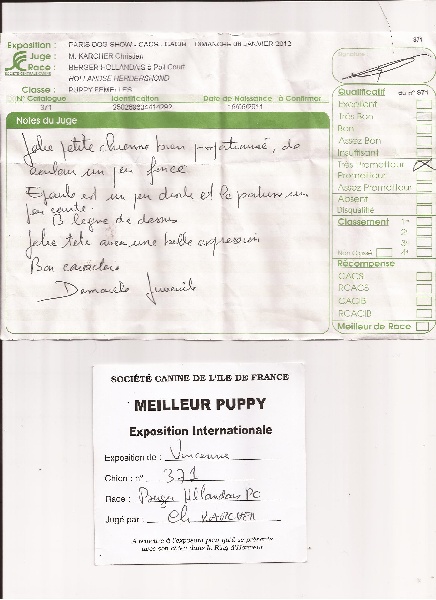 Exposition : PARIS DOG SHOW - CACS - CACIB - DIMANCHE 08 JANVIER 2012
871
Juge : M. KARCHER Christian
Race : BERGER HOLLANDAIS à Poil Court
HOLLANDSE HERDERSHOND
Classe : PUPPY FEMELLES
N° Catalogue Identification Date de Naissance à Confirmer
371
Notes du Juge
Jolie petite chienne bien proportionnée, de
couleur un peu foncé
Epaule est un peu droite et le
peu courte.
B. ligne de dessus
Jolie tête avec une belle expression
Bon caractère
Démarche Juvenile
Signature :
Qualificatif du n° 871
Excellent
Très Bon
Bon
Assez Bon
Insuffisant
Très Prometteur
Prometteur
Assez Prometteur
Absent
Disqualifié
Classement 1er
2e
3e
Non Classé 4e
Récompense
CACS
RCACS
CACIB
RCACIB
Meilleur de Race
SOCIÉTÉ CANINE DE L'ILE DE FRANCE
MEILLEUR PUPPY
Exposition Internationale
Exposition de : Vincennes
Chien : n° 371
Race : Berger Hollandais PC
Jugé par : Ch KARCHER
A remettre à l'exposant pour qu'il se présente
avec son chien dans le Ring d'Honneur